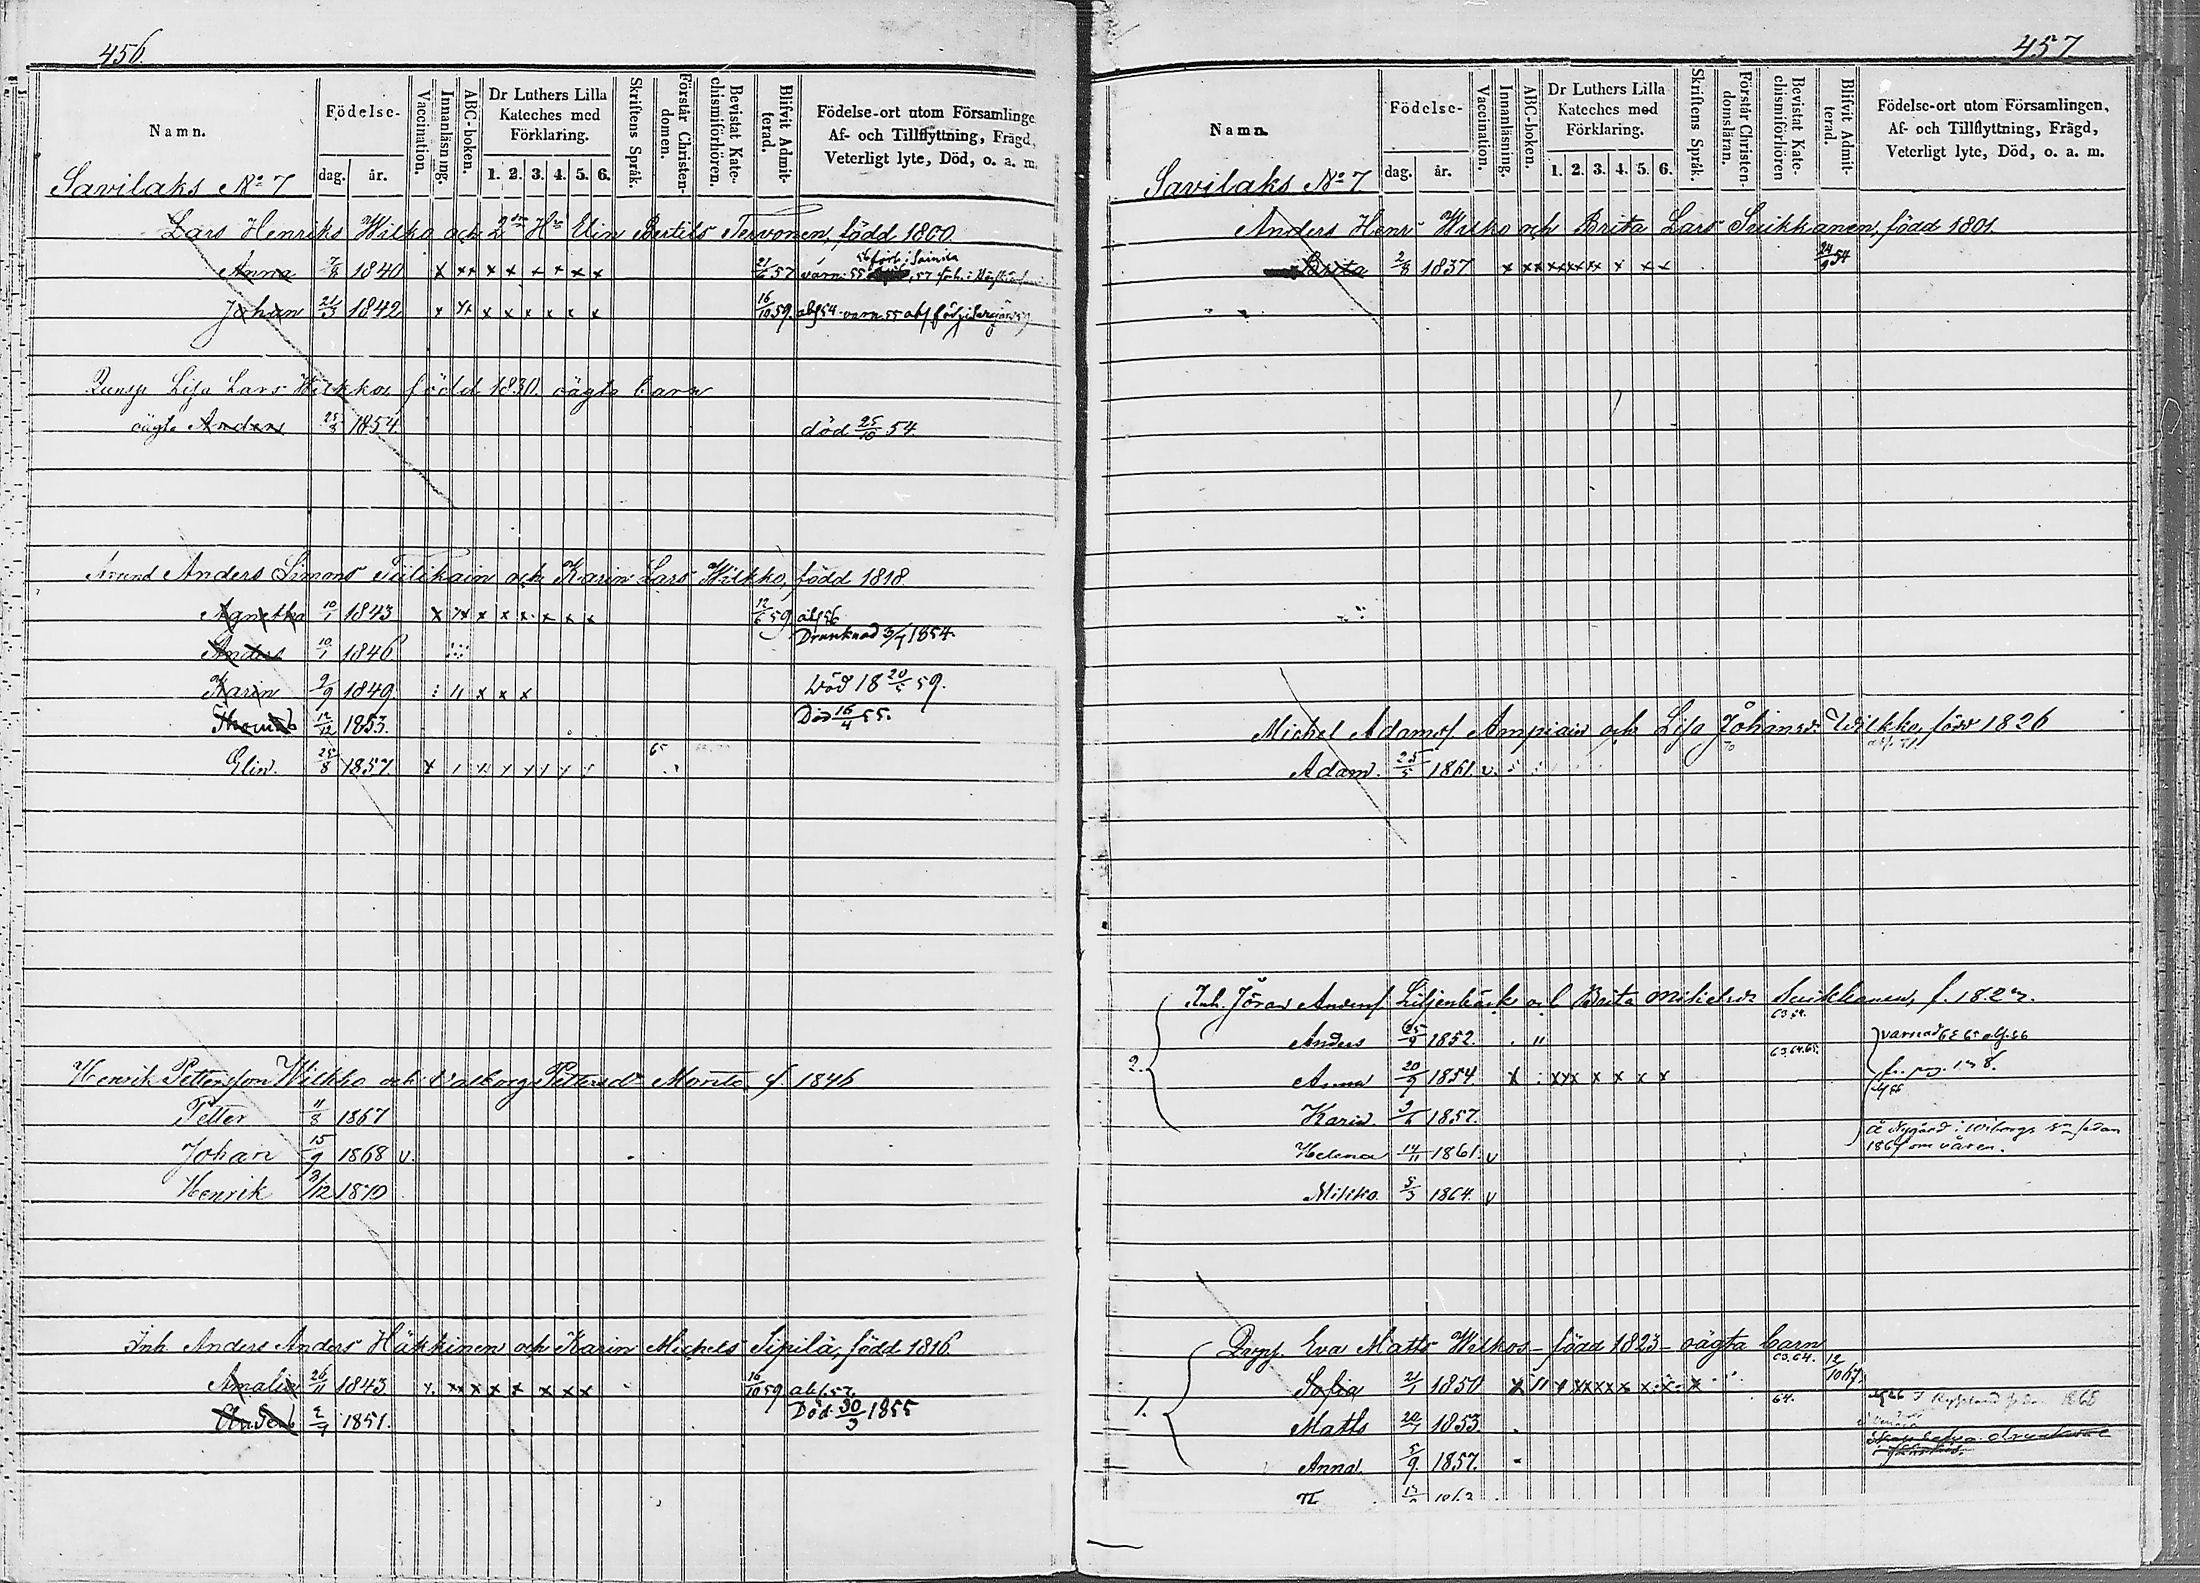 456.
Namn.
Födelse-
dag. år.
Vaccination.
Innanläsning.
ABC-boken.
Dr Luthers Lilla
Kateches med
Förklaring.
1. 2. 3. 4. 5. 6.
Skriftens Språk.
Förstår Christen-
domen.
Bevistat Kate-
chismiförhören.
Blifvit Admit-
terad.
Födelse-ort utom Församlinge
Af- och Tillflyttning, Frägd,
Veterligt lyte, Död, o. a. m.
Savilaks No 7
Lars Henriks Wilko och 2dra Hu Elin Bertils Tervonen, född 1800.
Anna 7/8 1840 x xx x x x x x x 21/6 57
Johan 21/3 1842 x xx x x x x x x 16/10 59.
Lisa Lars Wilkko, född 1830. oägta barn
oägta Anders 25/8 1854. död 25/10 54.
Anders Simons Tiilikain och Karin Lars Wilkko, född 1818.
Agnetha 10/1 1843 x xx x x x x x x 12/6 59 abs 56
Drunknad 3/7 1854.
Anders 10/1 1846
Karin 9/9 1849. x x x Död 18 20/5 59.
Thomas 12/12 1853. Död 16/4 55.
Elin. 25/8 1857. 65
Henrik Pettersson Wilkko och Valborg Pettersdr Monto f. 1846
Petter 11/8 1867
Johan 15/9 1868 v.
Henrik 3/12 1870
Inh. Anders Anders Häkkinen och Karin Michels Sipilä, född 1816.
Amalia 26/11 1843 x. xx x x x x x x 16/10 59 abs. 57.
Död 30/3 1855
Anders 2/7 1851.
457
Namn.
Födelse-
dag. år.
Vaccination.
Innanläsning.
ABC-boken.
Dr Luthers Lilla
Kateches med
Förklaring.
1. 2. 3. 4. 5. 6.
Skriftens Språk.
Förstår Christen-
domsläran.
Bevistat Kate-
chismiförhören
Blifvit Admit-
terad.
Födelse-ort utom Församlingen,
Af- och Tillflyttning, Frägd,
Veterligt lyte, Död, o. a. m.
Savilaks No 7
Anders Henr Wilko och Brita Lars Suikkanen, född 1801.
Brita 2/8 1837 24/9 54
Michel Adamss Ampiain och Lisa Johansdr Wilkko, född 1826
Adam. 25/5 1861. v.
Inh. Jöran Anderss Liljenbäck och Brita Mikelsdr Suikkanen, f. 182
63.64.
2.
Anders 25/9 1852. varnad
63.64.65.
Anna 20/9 1854. x
Karin. 1857.
Helena 14/11 1861. v
1867 om våren.
Mikko. 5/3 1864. v
Eva Matts Wilkos - född 1823 - oägta barn
63.64.
1.
Sofia 21/1 1850 12/10 67.
64.
Matts 20/7 1853.
Anna. 5/9. 1857.